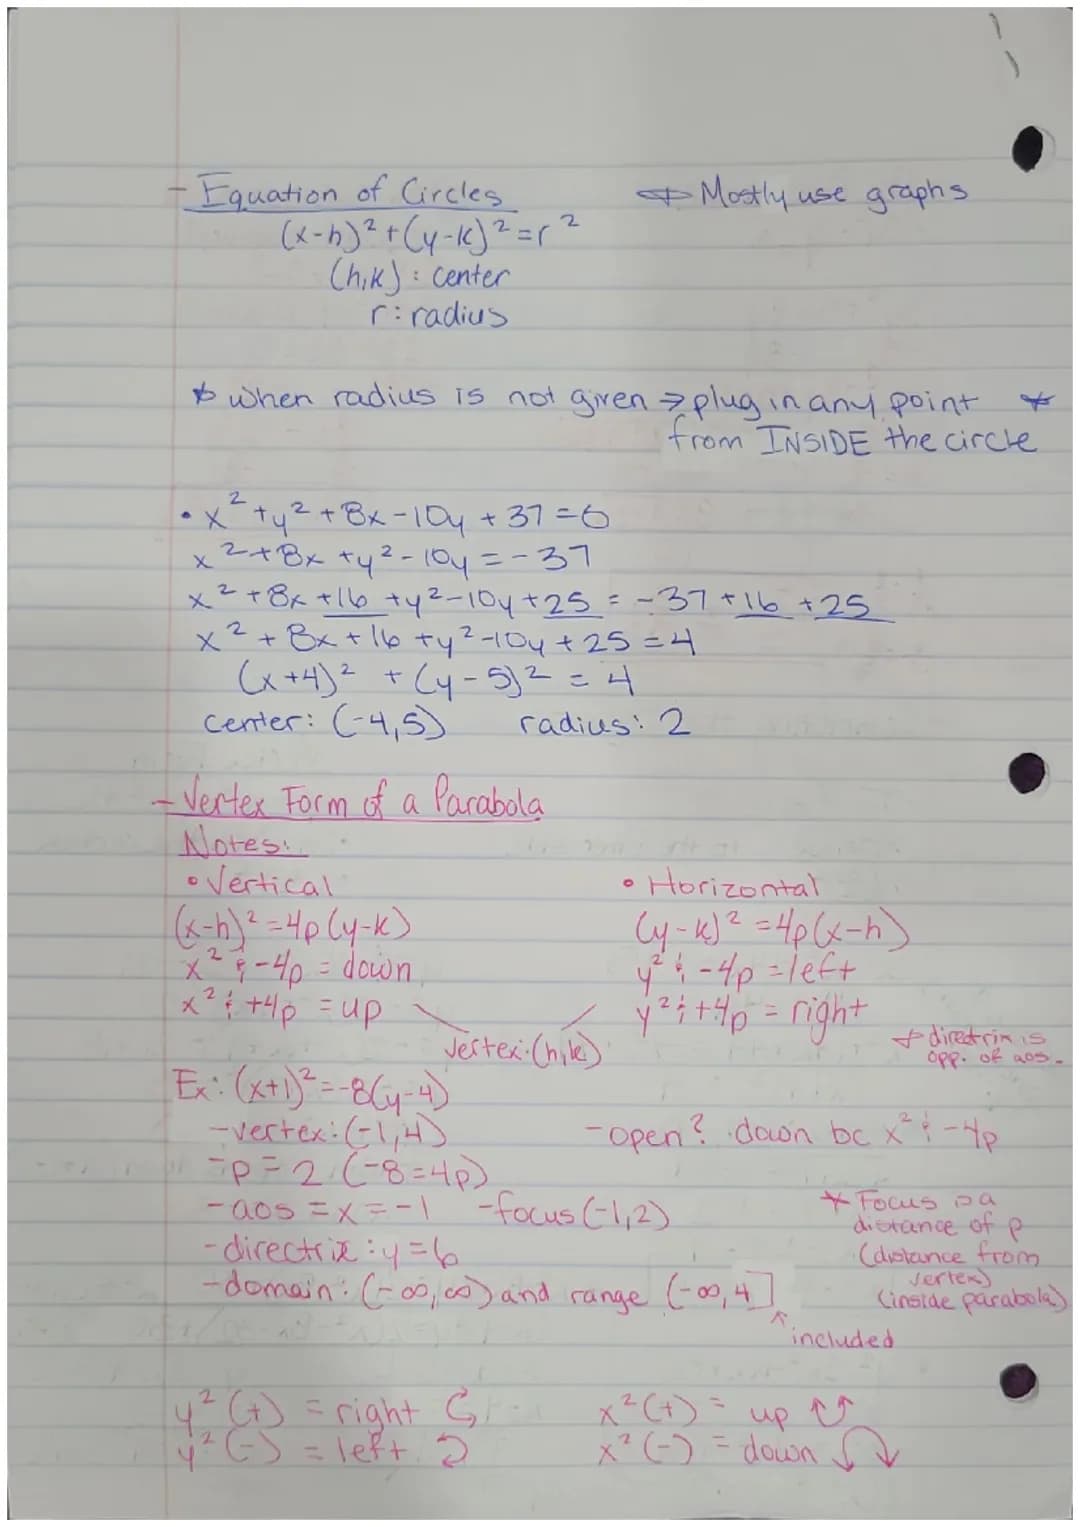 - Equation of Circles * Mostly use graphs
(x-h)²+(y-k)²=r²
(h,k): center
r: radius
* when radius is not given → plug in any point *
from INSIDE the circle
• x²+y²+8x-10y+37=0
x²+8x+y²-10y=-37
x²+8x+16+y²-10y+25=-37+16+25
x²+8x+16+y²-10y+25=4
(x+4)²+(y-5)²=4
center: (-4,5) radius: 2
- Vertex Form of a Parabola
Notes:
• Vertical • Horizontal
(x-h)²=4p(y-k) (y-k)²=4p(x-h)
x² & -4p = down y² & -4p = left
x² & +4p = up y² & +4p = right
vertex: (h,k) * directrix is
opp. of aos.
Ex: (x+1)²=-8(y-4)
- vertex: (-1,4) - open? down bc x² & -4p
- p = 2 (-8=4p)
- aos = x = -1 - focus (-1,2) * Focus is a
distance of p
- directrix: y=6 (distance from
vertex)
- domain: (-∞,∞) and range (-∞,4] (inside parabola)
included
y²(+) = right x²(+) = up
y²(-) = left x²(-) = down